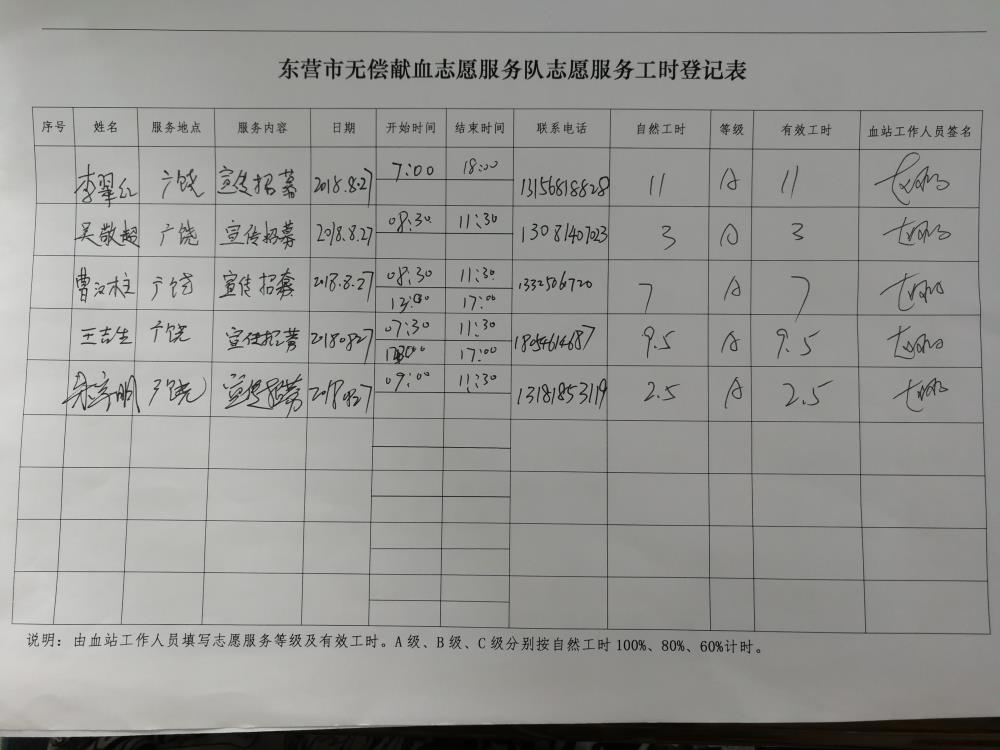 东营市无偿献血志愿服务队志愿服务工时登记表
序号 姓名 服务地点 服务内容 日期 开始时间 结束时间 联系电话 自然工时 等级 有效工时 血站工作人员签名
李翠红 广饶 宣传招募 2018.8.27 7:00 18:00 13156818828 11 A 11
吴敬超 广饶 宣传招募 2018.8.27 08:30 11:30 13081407023 3 A 3
曹汉柱 广饶 宣传招募 2018.8.27 08:30 11:30 1332506720 7 A 7
13:00 17:00
王吉生 广饶 宣传招募 20180827 07:30 11:30 18054614687 9.5 A 9.5
17:00
广饶 宣传招募 09:00 11:30 13181853119 2.5 A 2.5
说明：由血站工作人员填写志愿服务等级及有效工时。A级、B级、C级分别按自然工时100%、80%、60%计时。